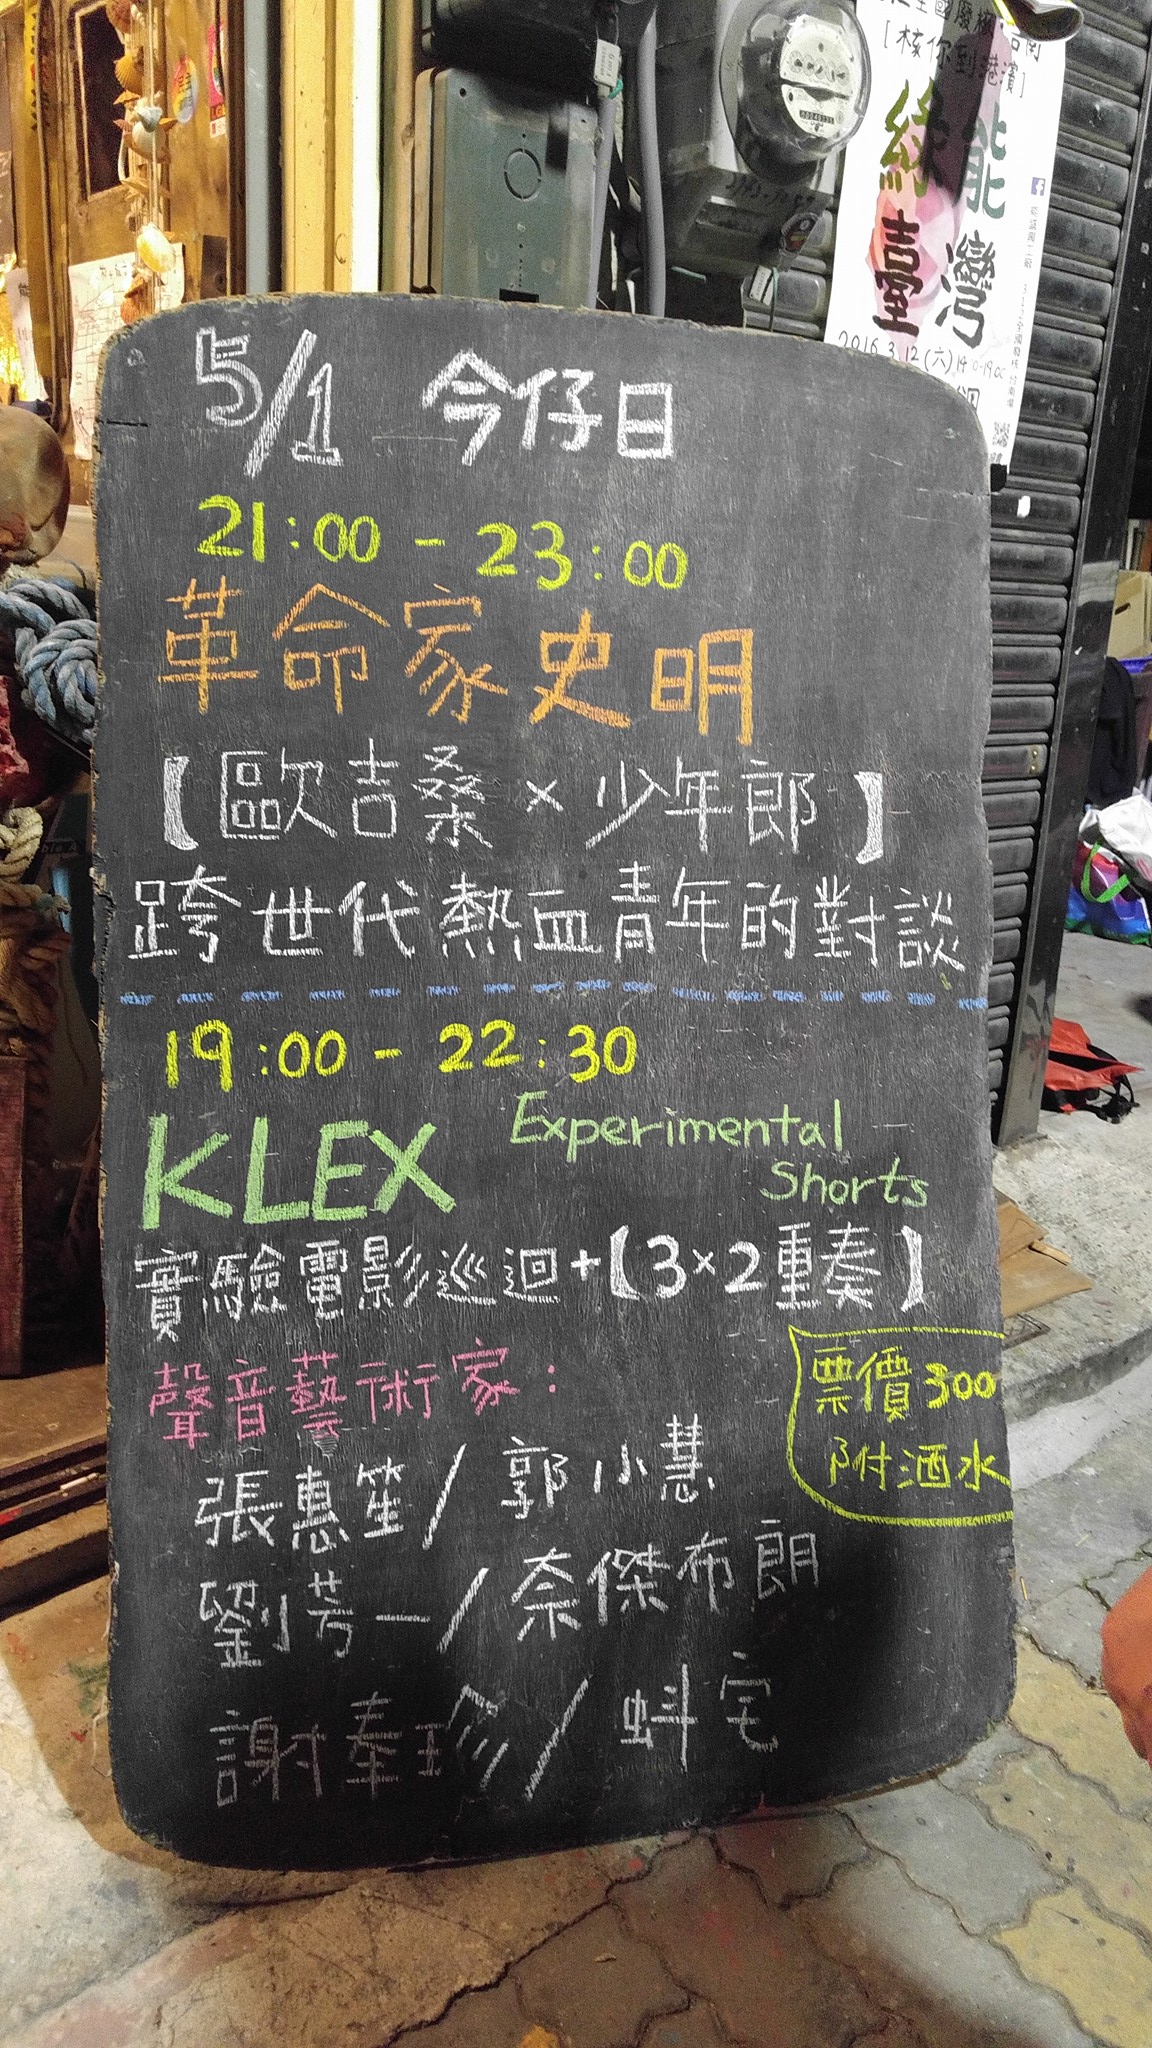 [核你到港濱]
綠能
臺灣
2016.3.12(六)14
5/1 今仔日
21:00 - 23:00
革命家史明
【歐吉桑×少年郎】
跨世代熱血青年的對談
19:00 - 22:30
KLEX Experimental
Shorts
實驗電影巡迴+【3×2重奏】
聲音藝術家:
票價300
附酒水
張惠笙/郭小慧
劉芳一/奈傑布朗
謝奉/蚪宅